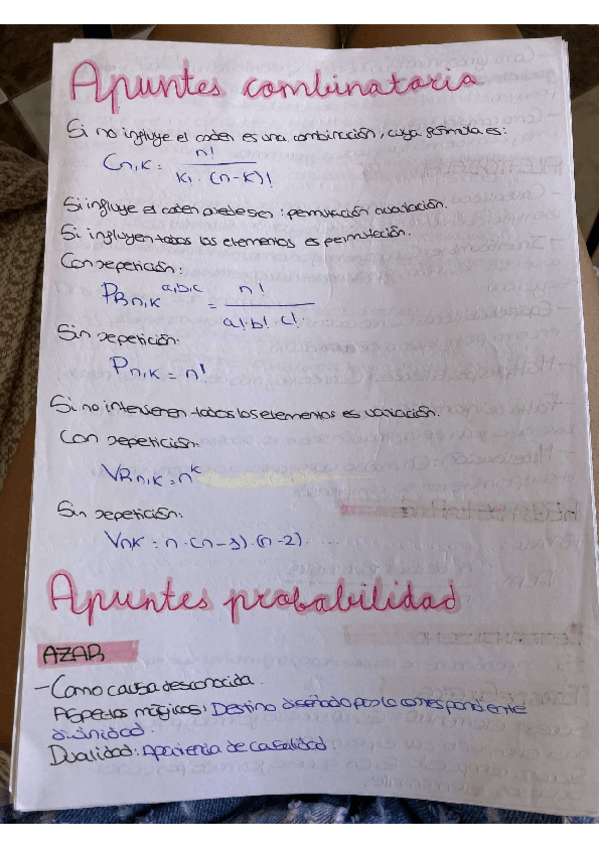 Apuntes combinatoria
Si no influye el orden es una combinación, cuya fórmula es:
Cn,K = n! / K! · (n-K)!
Si influye el orden puede ser: permutación o variación.
Si influyen todos los elementos es permutación.
Con repetición:
PRn,K a,b,c = n! / a! · b! · c!
Sin repetición:
Pn,K = n!
Si no intervienen todos los elementos es variación.
Con repetición:
VRn,K = n^K
Sin repetición:
VnK = n · (n-1) · (n-2)
Apuntes probabilidad
AZAR
- Como causa desconocida.
Aspectos mágicos: Destino diseñado por la correspondiente
divinidad.
Dualidad: Apariencia de casualidad